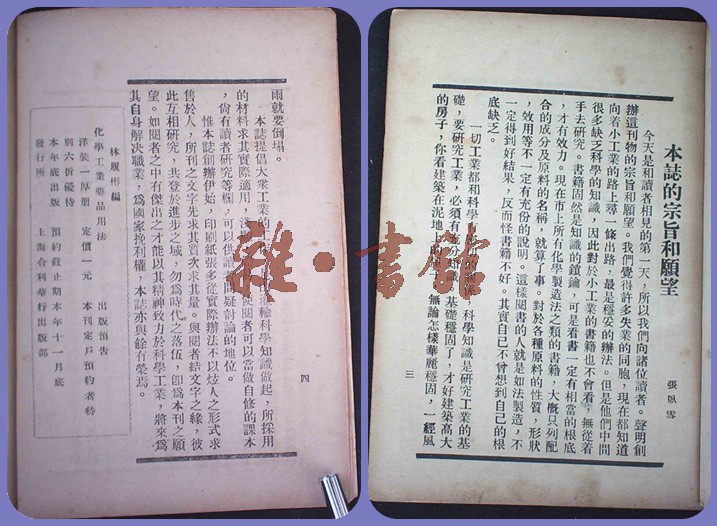 本誌的宗旨和願望
張臥雲
今天是和讀者相見的第一天，所以我們向諸位讀者。聲明創
辦這刊物的宗旨和願望。我們覺得許多失業的同胞，現在都知道
向着小工業的路上尋一條出路，最是穩妥的辦法。但是他們中間
很多缺乏科學的知識，因此對於小工業的書籍也不會看，無從着
手去研究。書籍固然是知識的鎖鑰，可是看書一定有相當的根底
，才有效力。現在市上所有化學製造法之類的書籍，大概只列配
合的成分及原料的名稱，就算了事。對於各種原料的性質，形狀
，效用等不一定有充份的說明。這樣閱書的人就是如法製造，不
一定得到好結果，反而怪書籍不好，其實自己不曾想到自己的根
底缺乏。
一切工業都和科學 科學知識是研究工業的基
礎，要研究工業，必須有充分知識，基礎穩固了，才好建築高大
的房子，你看建築在泥地 無論怎樣華麗穩固，一經風
三
雨就要倒塌。
本誌提倡大衆工業的 灌輸科學知識做起，所採用
的材料求其實際適用，淺 使閱者可以當做自修的課本
，尙有讀者研究等欄，可以供讀 問疑討論的地位。
惟本誌創辦伊始，印刷紙張多從實際辦法不以炫人之形式求
售於人，所刊之文字先求其實大求其量。與閱者結文字之緣，彼
此互相研究，共登於進步之域，勿爲時代之落伍，卽爲本刊之願
望。如閱者之中有傑出之才能以其精神致力於科學工業，將來爲
其自身解决職業，爲國家挽利權，本誌亦與餘有榮焉。
四
林履彬編
化學工業藥品用法 出版預告
洋裝一厚册 定價一元 本刊定戶預約者特
別六折優待
本年底出版 預約截止期本年十一月底
發行所 上海合利華行出版部
雜·書館